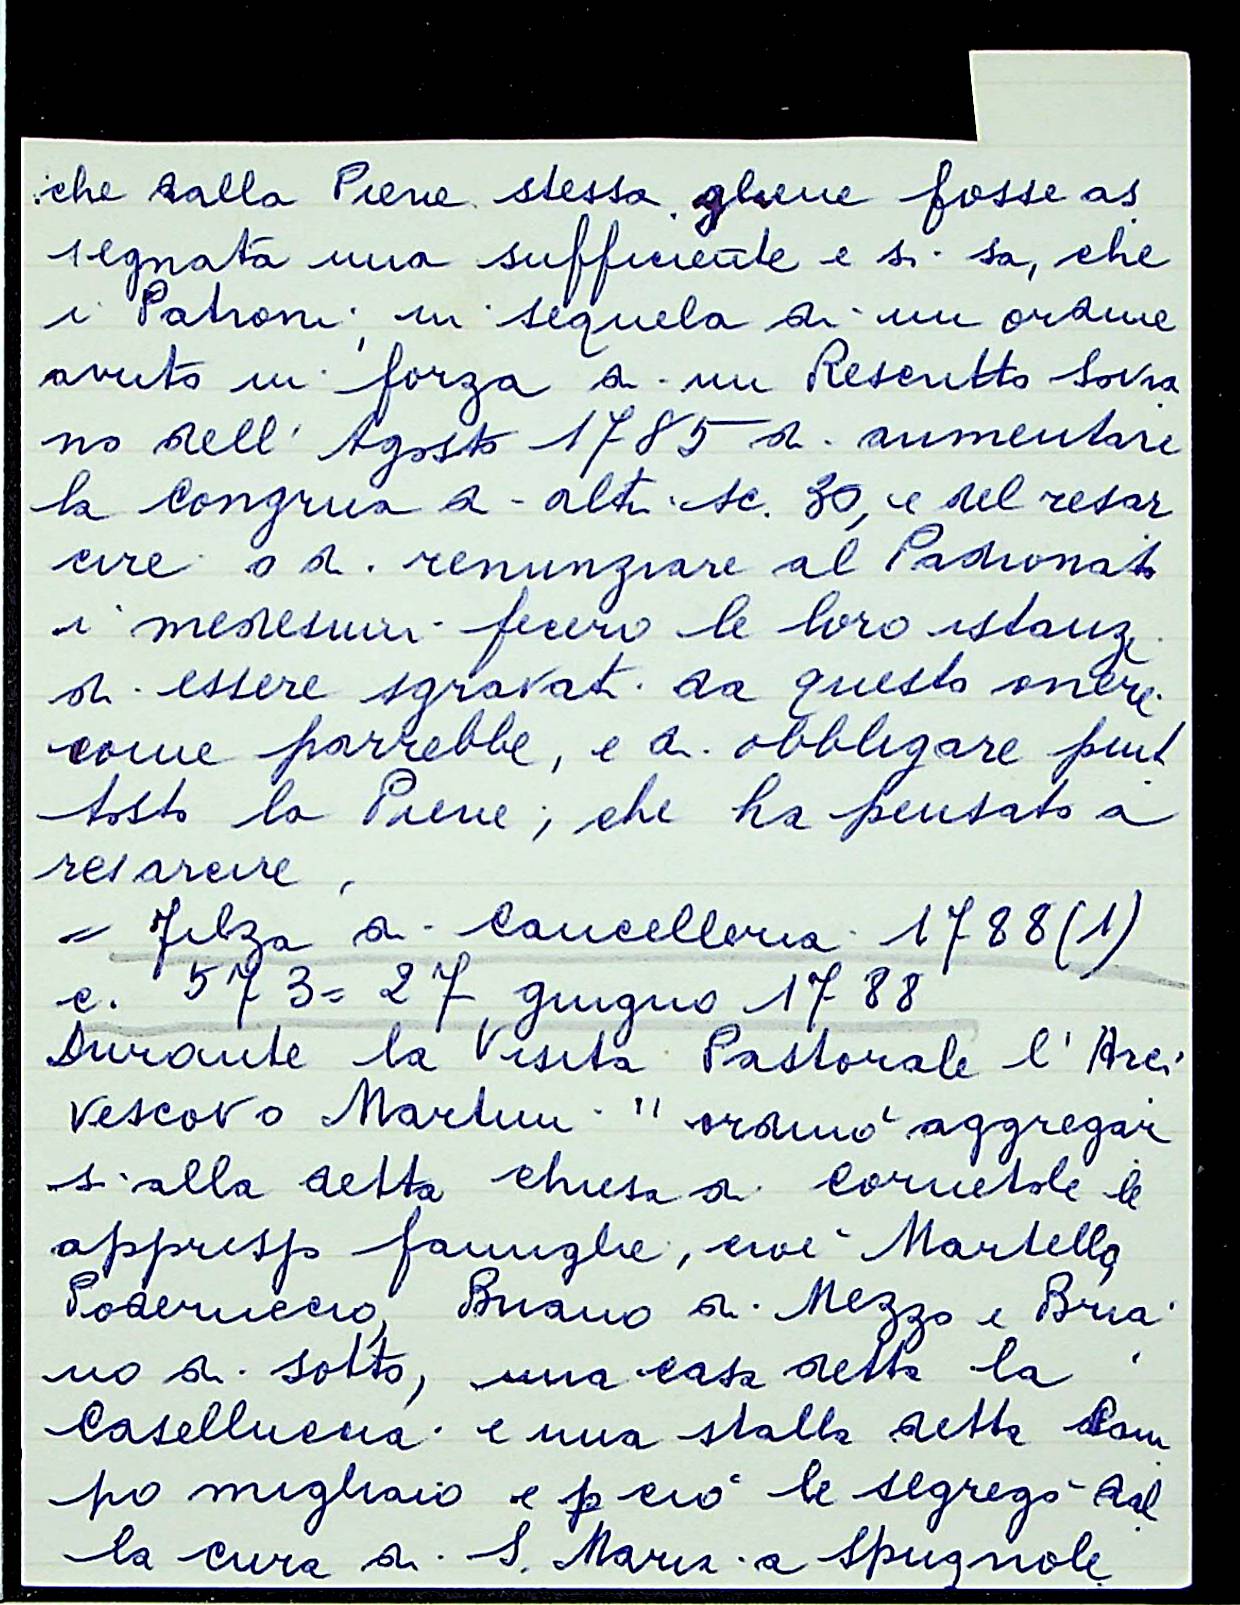 che dalla Pieve stessa gliene fosse as
segnata una sufficiente e si sa, che
i Patroni, in sequela di un ordine
avuto in forza di un Rescritto Sovra
no dell' Agosto 1785 di aumentare
la Congrua di altri sc. 30, e del resar
cire o di renunziare al Padronato
i medesimi fecero le loro istanze
di essere sgravati da questo onere
come parrebbe, e di obbligare piut
tosto la Pieve; che ha pensato a
resarcire.
= Filza di Cancelleria 1788(1)
c. 573 = 27 giugno 1788
Durante la Visita Pastorale l'Arci
vescovo Martini "ordinò aggregar
si alla detta chiesa di Cornetole le
appresso famiglie, cioè Martello,
Poderuccio, Briano di Mezzo e Bria
no di sotto, una casa detta la
Caselluccia e una stalla detta Cam
po migliaio e p ciò le segregò dal
la cura di S. Maria a Spugnole